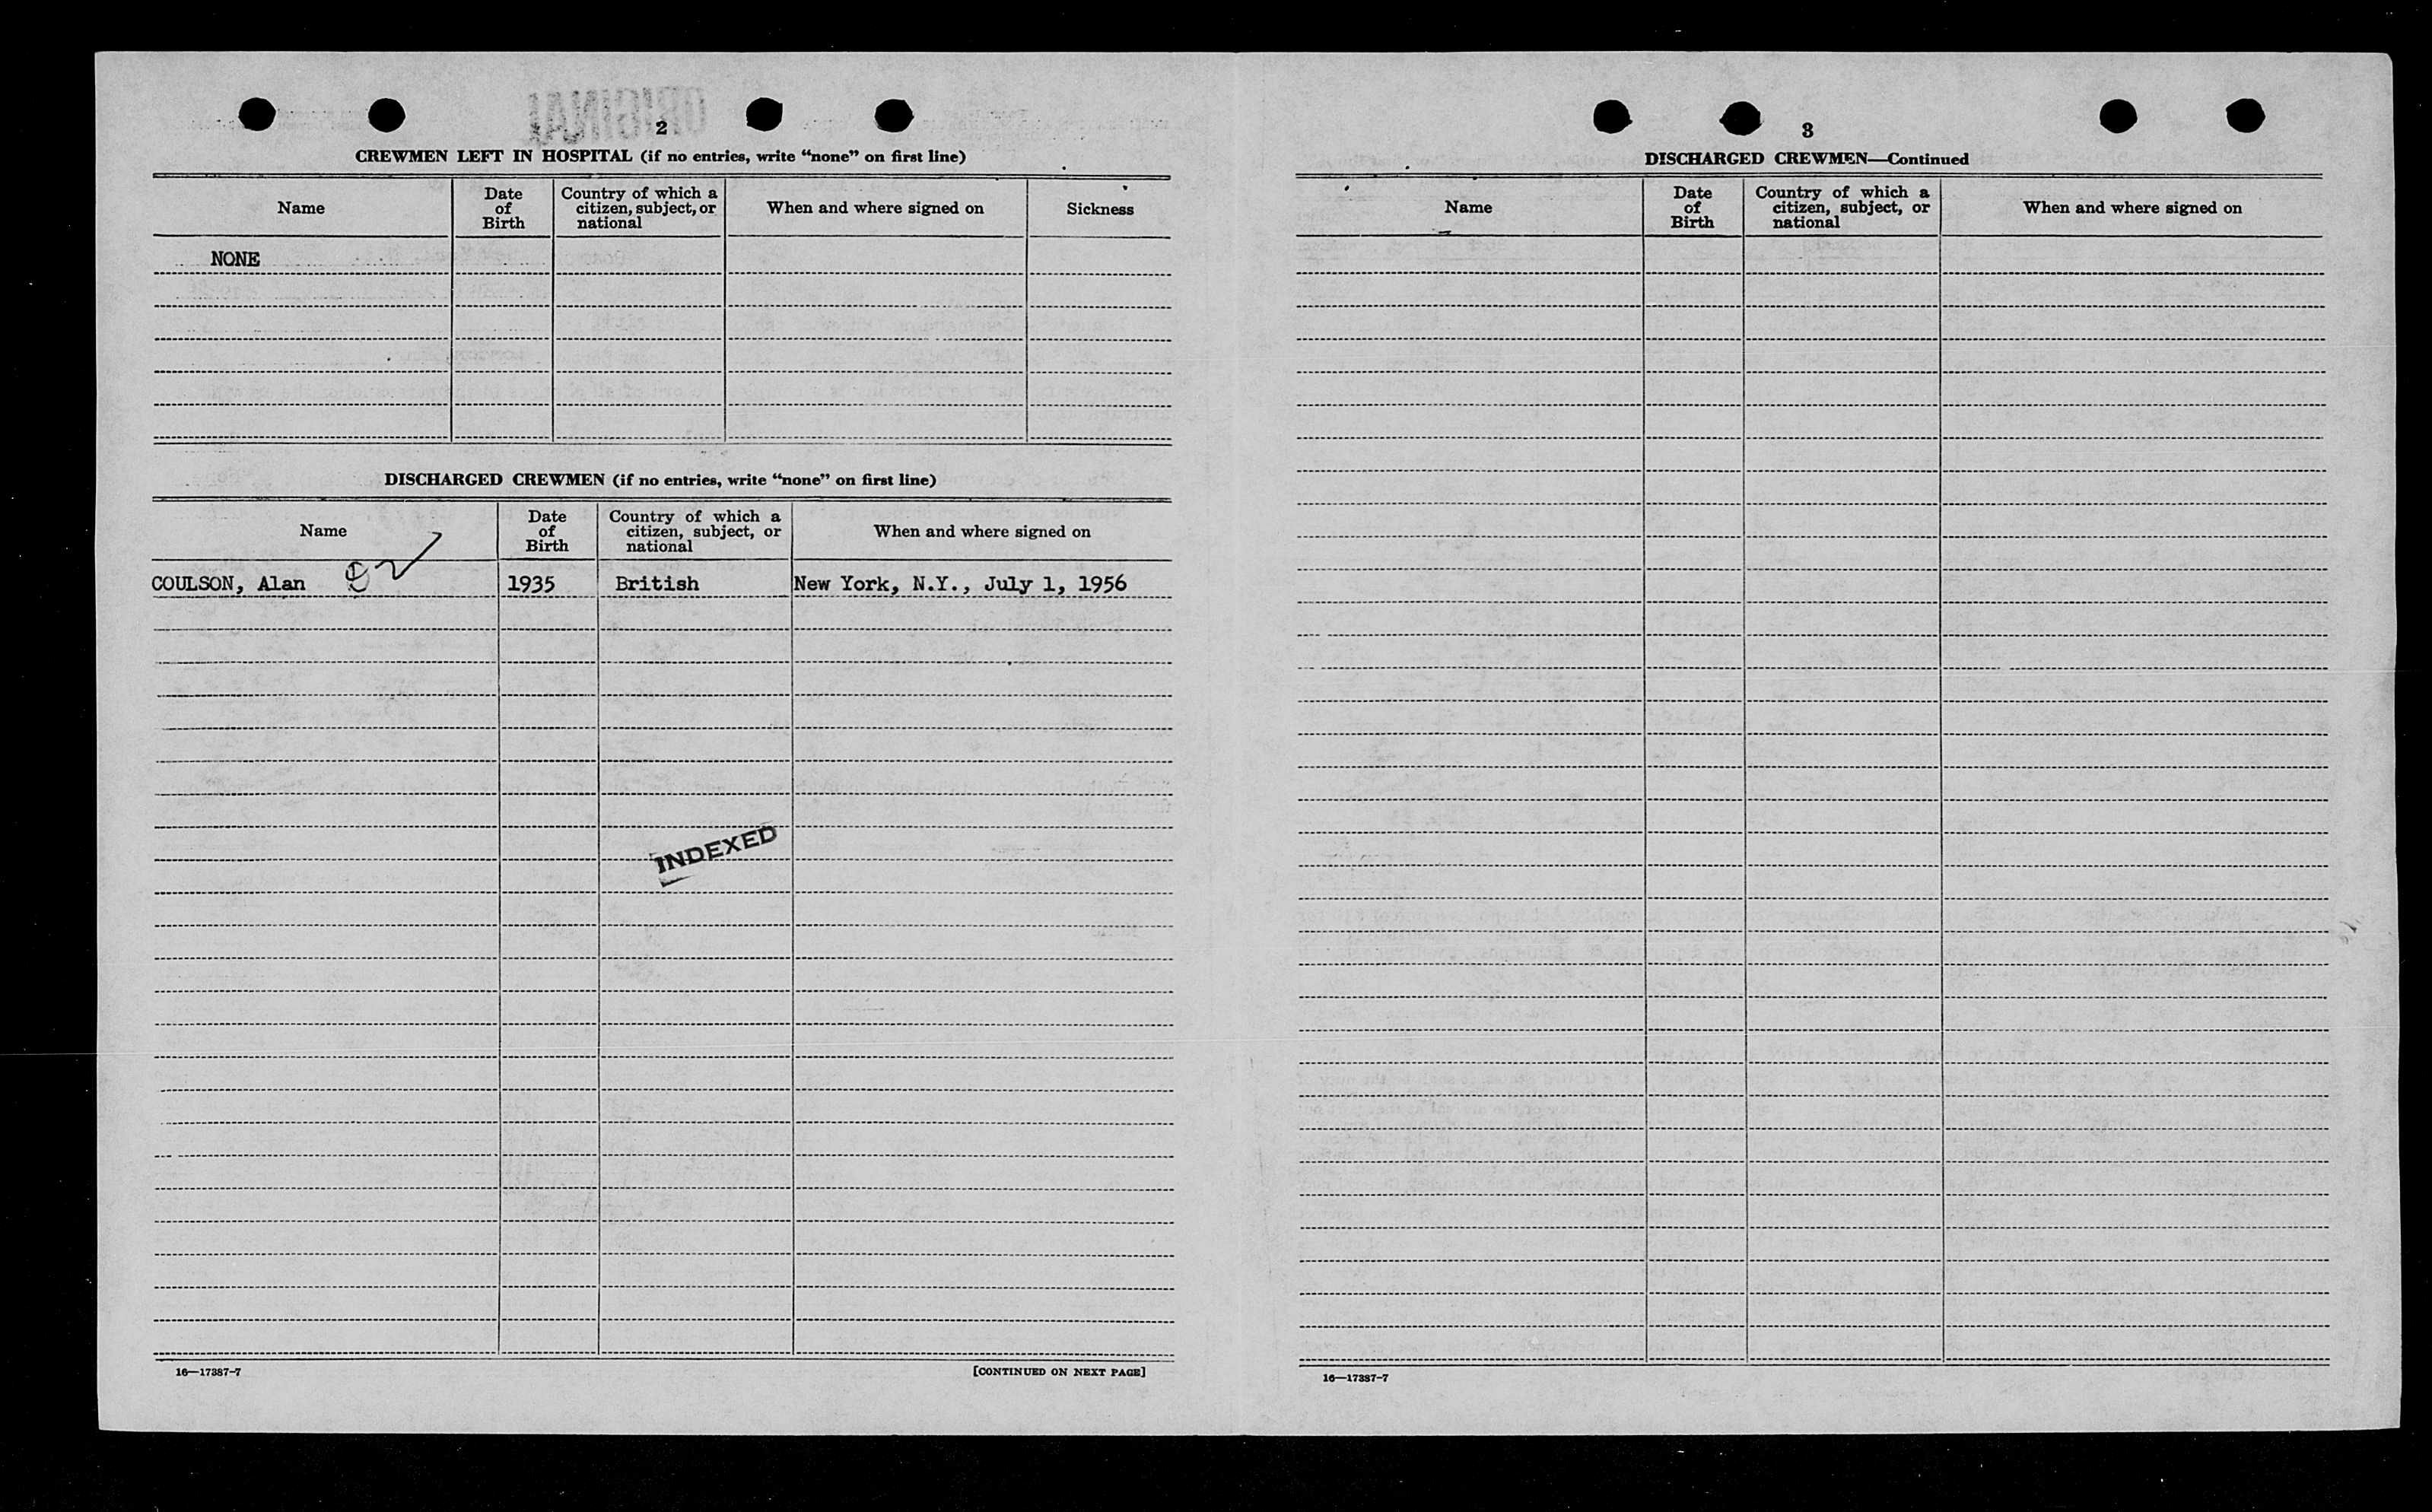 ORIGINAL
2
CREWMEN LEFT IN HOSPITAL (if no entries, write "none" on first line)
Name
Date of Birth
Country of which a citizen, subject, or national
When and where signed on
Sickness
NONE
DISCHARGED CREWMEN (if no entries, write "none" on first line)
Name
Date of Birth
Country of which a citizen, subject, or national
When and where signed on
COULSON, Alan 1935 British New York, N.Y., July 1, 1956
INDEXED
16—17387-7
[CONTINUED ON NEXT PAGE]
3
DISCHARGED CREWMEN—Continued
Name
Date of Birth
Country of which a citizen, subject, or national
When and where signed on
16—17387-7